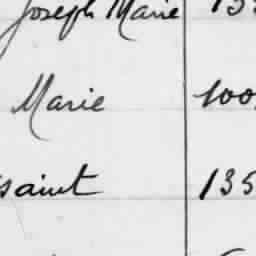 Joseph Marie 13
Marie 100
saint 135